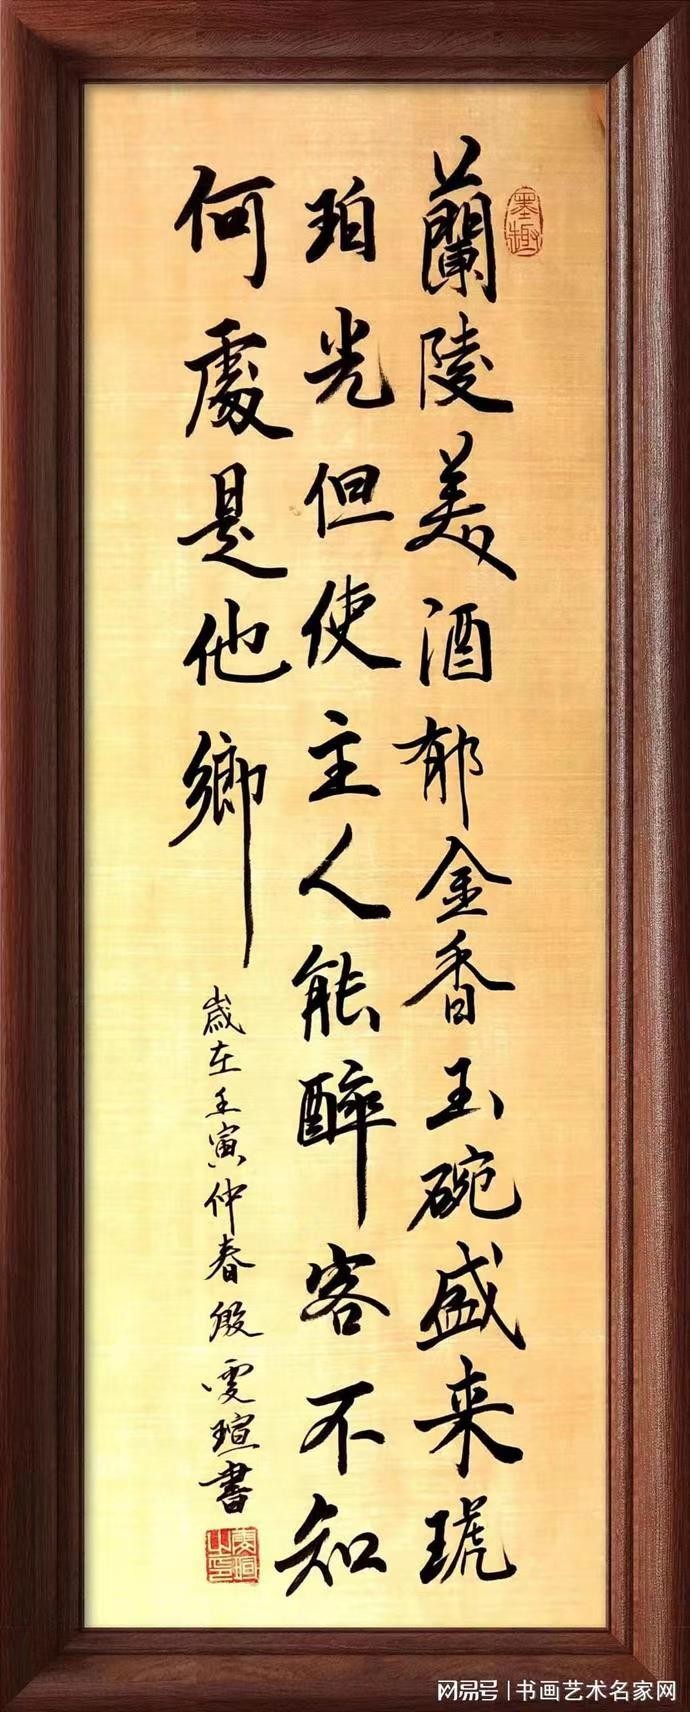 蘭陵美酒郁金香玉碗盛来琥
珀光但使主人能醉客不知
何處是他鄉
歲在壬寅仲春殷雯瑄書
墨趣
雯瑄之印
网易号 | 书画艺术名家网